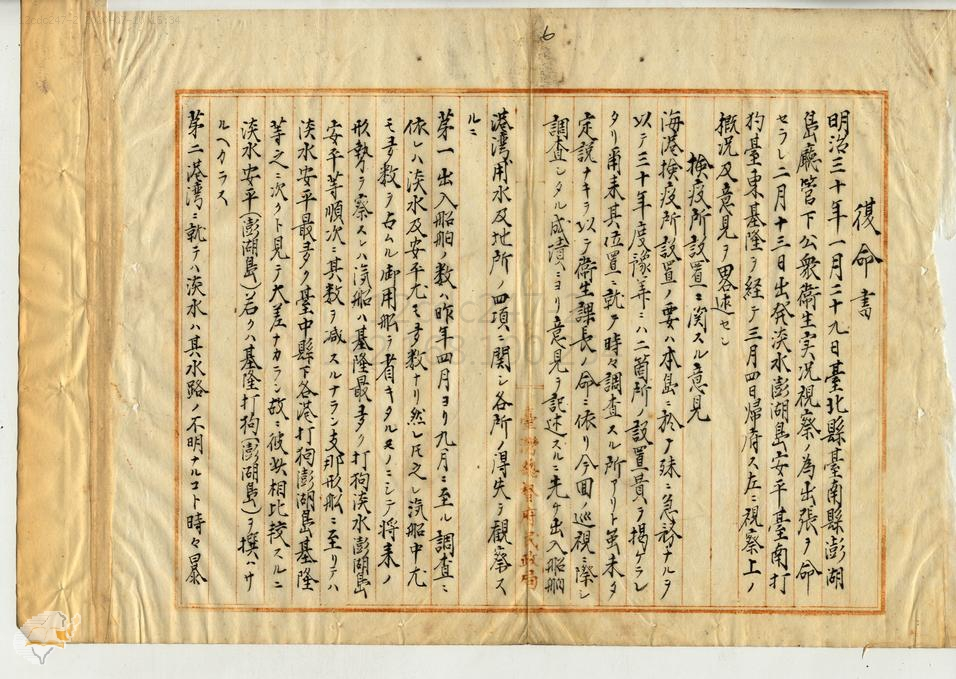 復命書
明治三十年一月二十九日臺北縣臺南縣澎湖
島廳管下公衆衞生実況視察ノ為出張ヲ命
セラレ二月十三日出発淡水澎湖島安平臺南打
狗臺東基隆ヲ経テ三月四日帰府ス左ニ視察上ノ
概况及意見ヲ畧述セン
檢疫所設置ニ関スル意見
海港検疫所設置ノ要ハ本島ニ於テ殊ニ急務ナルヲ
以テ三十年度豫算ニハ二箇所ノ設置費ヲ掲ケラレ
タリ爾来其位置ニ就テ時々調査スル所アリト虽未タ
定説ナキヲ以テ衞生課長ノ命ニ依リ今回ノ巡視ニ際シ
調査シタル成績ニヨリ意見ヲ記述スルニ先ケ出入船舶
港湾用水及地所ノ四項ニ関シ各所ノ得失ヲ観察ス
ルニ
第一出入船舶ノ数ハ昨年四月ヨリ九月ニ至ル調査ニ
依レハ淡水及安平尤モ多数ナリ然レ𪜈之レ汽船中尤
モ多数ヲ占ムル御用舩ヲ省キタルモノニシテ将来ノ
形勢ヲ察スレハ汽船ハ基隆最多ク打狗淡水澎湖島
安平等順次ニ其数ヲ减スルナラン支那形舩ニ至リテハ
淡水安平最多ク臺中縣下各港打狗澎湖島基隆
等之ニ次クト見テ大差ナカラン故ニ彼此相比較スルニ
淡水安平(澎湖島)若クハ基隆打狗(澎湖島)ヲ撰ハサ
ルヘカラス
第二港湾ニ就テハ淡水ハ其水路ノ不明ナルコト時々暴
臺灣總督府民政局
6